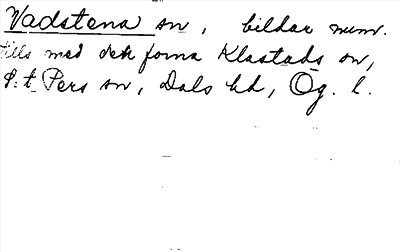 Vadstena sn, bildar num.
tills med det forna Klastads sn,
S:t Pers sn, Dals hd, Ög. l.